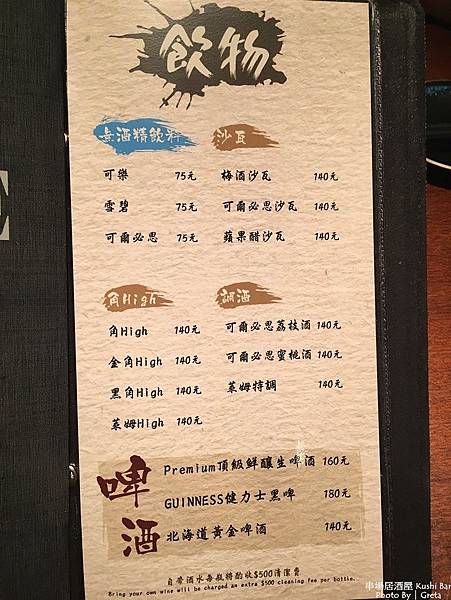 飲物
無酒精飲料
可樂 75元
雪碧 75元
可爾必思 75元
沙瓦
梅酒沙瓦 140元
可爾必思沙瓦 140元
蘋果醋沙瓦 140元
角High
角High 140元
金角High 140元
黑角High 140元
萊姆High 140元
調酒
可爾必思荔枝酒 140元
可爾必思蜜桃酒 140元
萊姆特調 140元
啤酒
Premium頂級鮮釀生啤酒 160元
GUINNESS健力士黑啤 180元
北海道黃金啤酒 140元
自帶酒水每瓶將酌收$500清潔費
Bring your own wine will be charged an extra $500 cleaning fee per bottle.
串場居酒屋 Kushi Bar
Photo By | Greta